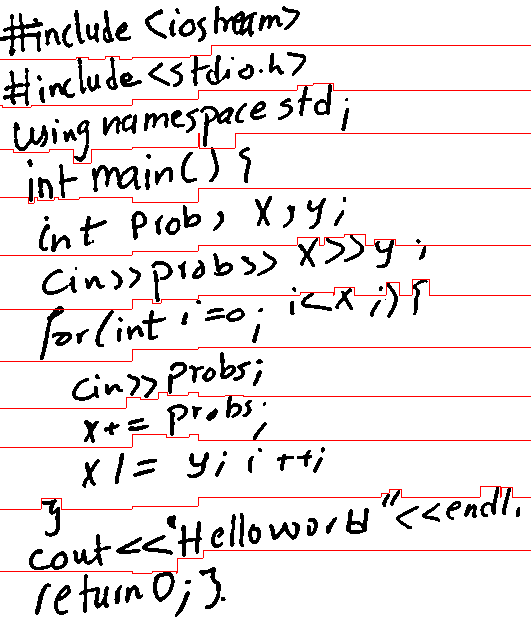 #include <iostream>
#include <stdio.h>
using namespace std;
int main() {
int prob, x, y;
cin>>probs>> x>>y;
for(int i=0; i<x;) {
cin>> probs;
x+= probs;
x /= y; i++;
}
cout<<"Helloworld"<<endl.
return 0; }.